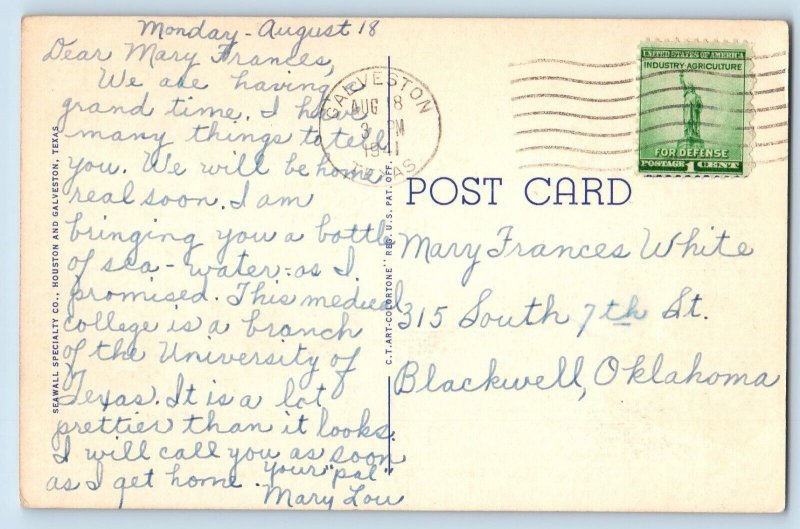 Monday - August 18
Dear Mary Frances,
We are having a
grand time. I have
many things to tell
you. We will be home
real soon. I am
bringing you a bottle
of sea-water-as I
promised. This medical
college is a branch
of the University of
Texas. It is a lot
prettier than it looks.
I will call you as soon
as I get home.
Your "pal"
Mary Lou
SEAWALL SPECIALTY CO., HOUSTON AND GALVESTON, TEXAS
C.T. ART-COLORTONE" REG. U.S. PAT. OFF.
GALVESTON
AUG 18
3 PM
1941
TEXAS
UNITED STATES OF AMERICA
INDUSTRY·AGRICULTURE
FOR DEFENSE
POSTAGE 1 CENT
POST CARD
Mary Frances White
315 South 7th St.
Blackwell, Oklahoma